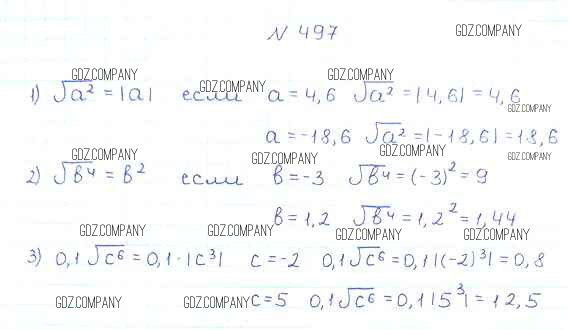 N 497
GDZ.COMPANY
GDZ.COMPANY GDZ.COMPANY GDZ.COMPANY
1) √a² = |a| если a = 4,6 √a² = |4,6| = 4,6
GDZ.COMPANY
a = -18,6 √a² = |-18,6| = 18,6
GDZ.COMPANY GDZ.COMPANY GDZ.COMPANY GDZ.COMPANY
2) √в⁴ = в² если в = -3 √в⁴ = (-3)² = 9
в = 1,2 √в⁴ = 1,2² = 1,44
GDZ.COMPANY GDZ.COMPANY GDZ.COMPANY GDZ.COMPANY
3) 0,1√c⁶ = 0,1·|c³| c = -2 0,1√c⁶ = 0,1|(-2)³| = 0,8
GDZ.COMPANY GDZ.COMPANY c = 5 0,1√c⁶ = 0,1|5³| = 12,5